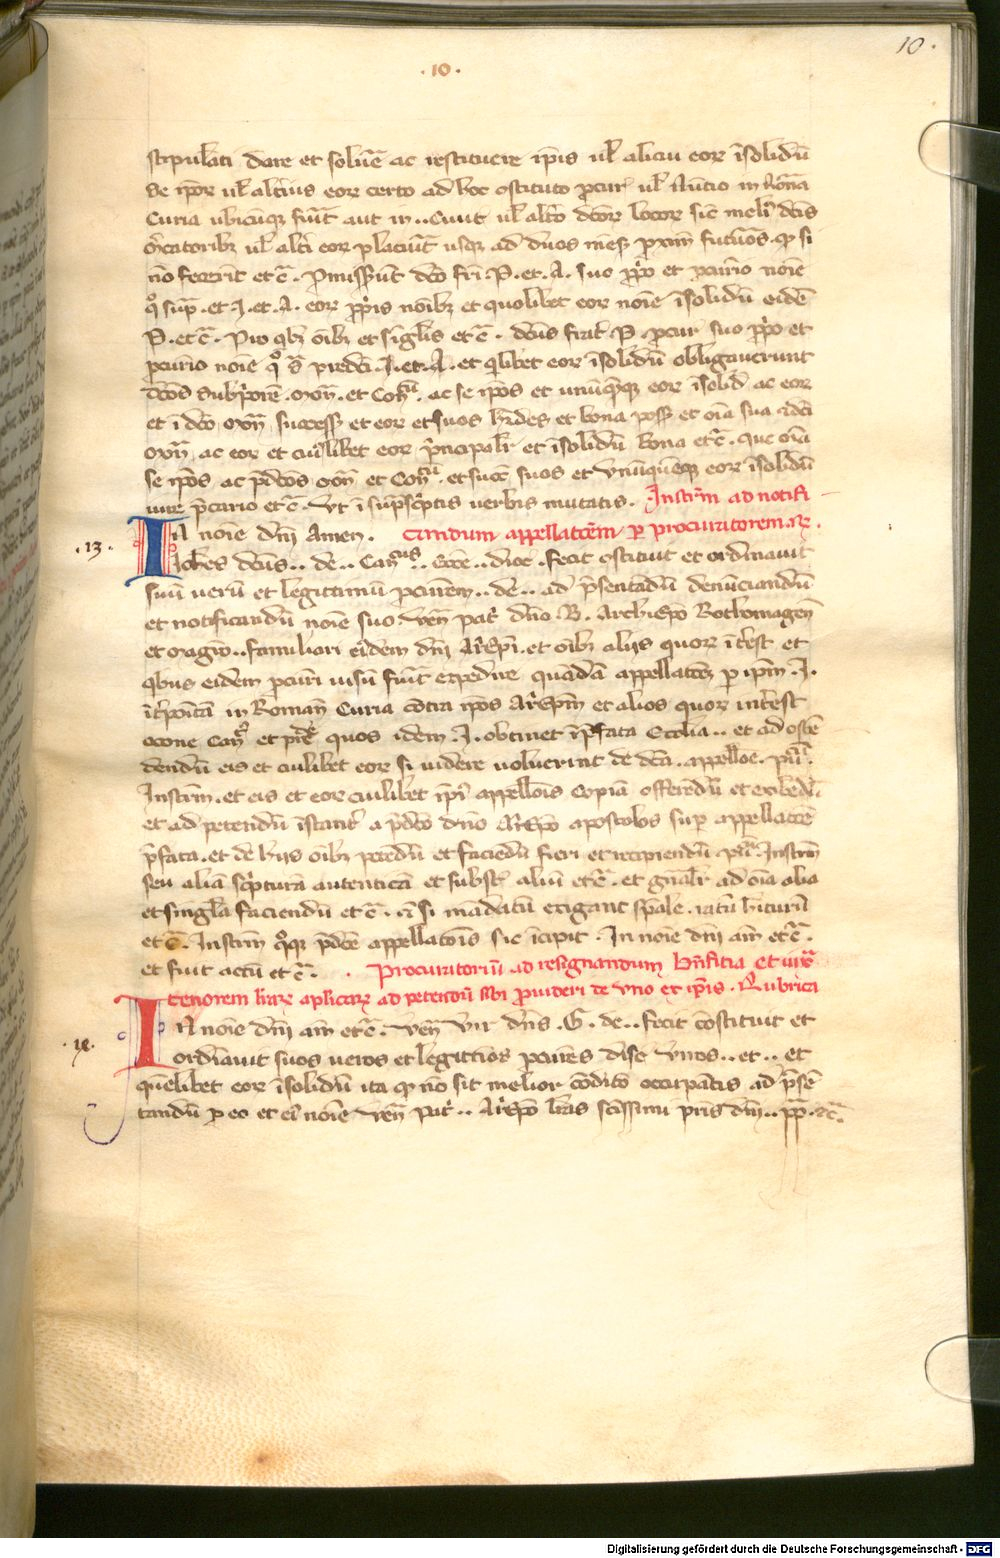 10.
.10.
stipulati dare et solue ac restituere ipis ul alicui eoꝝ insolidu
de ipoꝝ ul alterius eoꝝ certo ad hoc ostituto procur ul Nuntio in Roma
Curia ubicunqꝫ fuit aut in .. Ciuit ul alto dcoꝝ locoꝝ sic meli dcis
Mcatoribꝫ ul alti eoꝝ placuit usqꝫ ad duos mens pxim futuros. qd si
no fecerit etc. Promiserut dco fri P. et. A. suo pprio et pcurio noie
quo sup. et. J. et. A. eoꝝ pprijs noibꝫ et quolibet eoꝝ noie insolidu eide
P. etc. Pro qbꝫ oibꝫ et singlis etc. dcus frat P. pcur suo pprio et
pcurio noie quo sa predci .J. et. A. et qlibet eoꝝ insolidu obligauerunt
dcos Subpriore .oxn. et Conu. ac se ipos et unuqꝫqꝫ eoꝝ isolid ac eoꝝ
et i dco oxn success et eoꝝ et suos hrdes et bona poss et oia sua idci
oxn ac eoꝝ et cuiuslibet eoꝝ principalr et insolidu bona etc. que oia
se ipos ac pdcos oxn et Conu. et succ suos et unuquemqꝫ eoꝝ insolidu
iure pcario etc. Ut i supscriptis uerbis mutatis. Instrm ad notifi
.13. In noie dni Amen. candum appellacoem per procuratorem ꝛc.
Johes dcus .. de .. Canicus .. Ecce .. dioc. fecit ostituit et ordinauit
suu ueru et legittimu pcurem .. de .. ad psentadu denuncianđu
et notificandu noie suo Ven pat dno .B. Archiepo Rothomagen
et magro .. familiari eidem dni Arepi. et oibꝫ alijs quoꝝ itest et
qbus eidem pcuri uisu fuit expedire quanda appellacoeꝫ p ipm .J.
itposita in Romana Curia contra ipos Arepm et alios quoꝝ interest
occone Can et preb quos idem .J. obtinet i pfata Ecclia .. et ad oste
dendu eis et cuilibet eoꝝ si uidere uoluerint de dca. appelloe. pu.
Instrm. et eis et eoꝝ cuilibet ipi appellois copia offeredu et exibedu.
et ad petendu instant a pdco dno Arepo apostolos sup appellacoe
pfata. et de hijs oibꝫ petedu et faciedu fieri et recipiendu pu. Instrm
seu alia scriptura autentica et subst aliu etc. et gnalr ad oia alia
et singla faciendu etc. et si mandatu exigant spale. ratu hituru
etc. Instrm quoqꝫ pdce appellacois sic icipit. In noie dni am etc.
et fuit actu etc. . Procuratoriu ad resignandum bnficia et uira
tenorem lrarꝝ aplicarꝝ ad petendu sibi prouideri de uno ex ipis. Rubrica
In noie dni am etc. Ven Vir dns. G. de .. fecit constituit et
ordinauit suos ueros et legittios pcures disc Viros .. et .. et
quelibet eoꝝ insolidu ita qd no sit melior condicio occupatis ad pse
tandu p eo et ei noie Ven pat .. Arepo lras sctissimi pris dni .. pp. ꝛc.